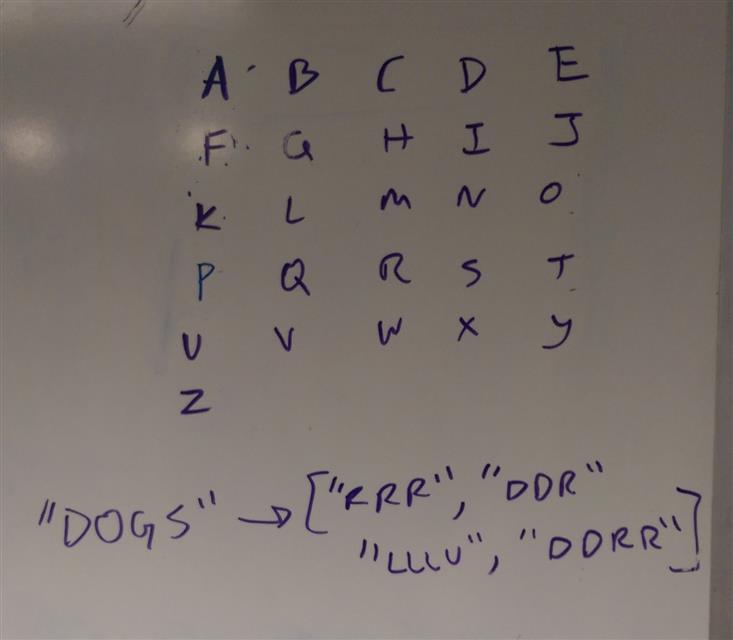 A B C D E
F G H I J
K L M N O
P Q R S T
U V W X Y
Z
"DOGS" → ["RRR", "DDR"
"LLLU", "DDRR"]